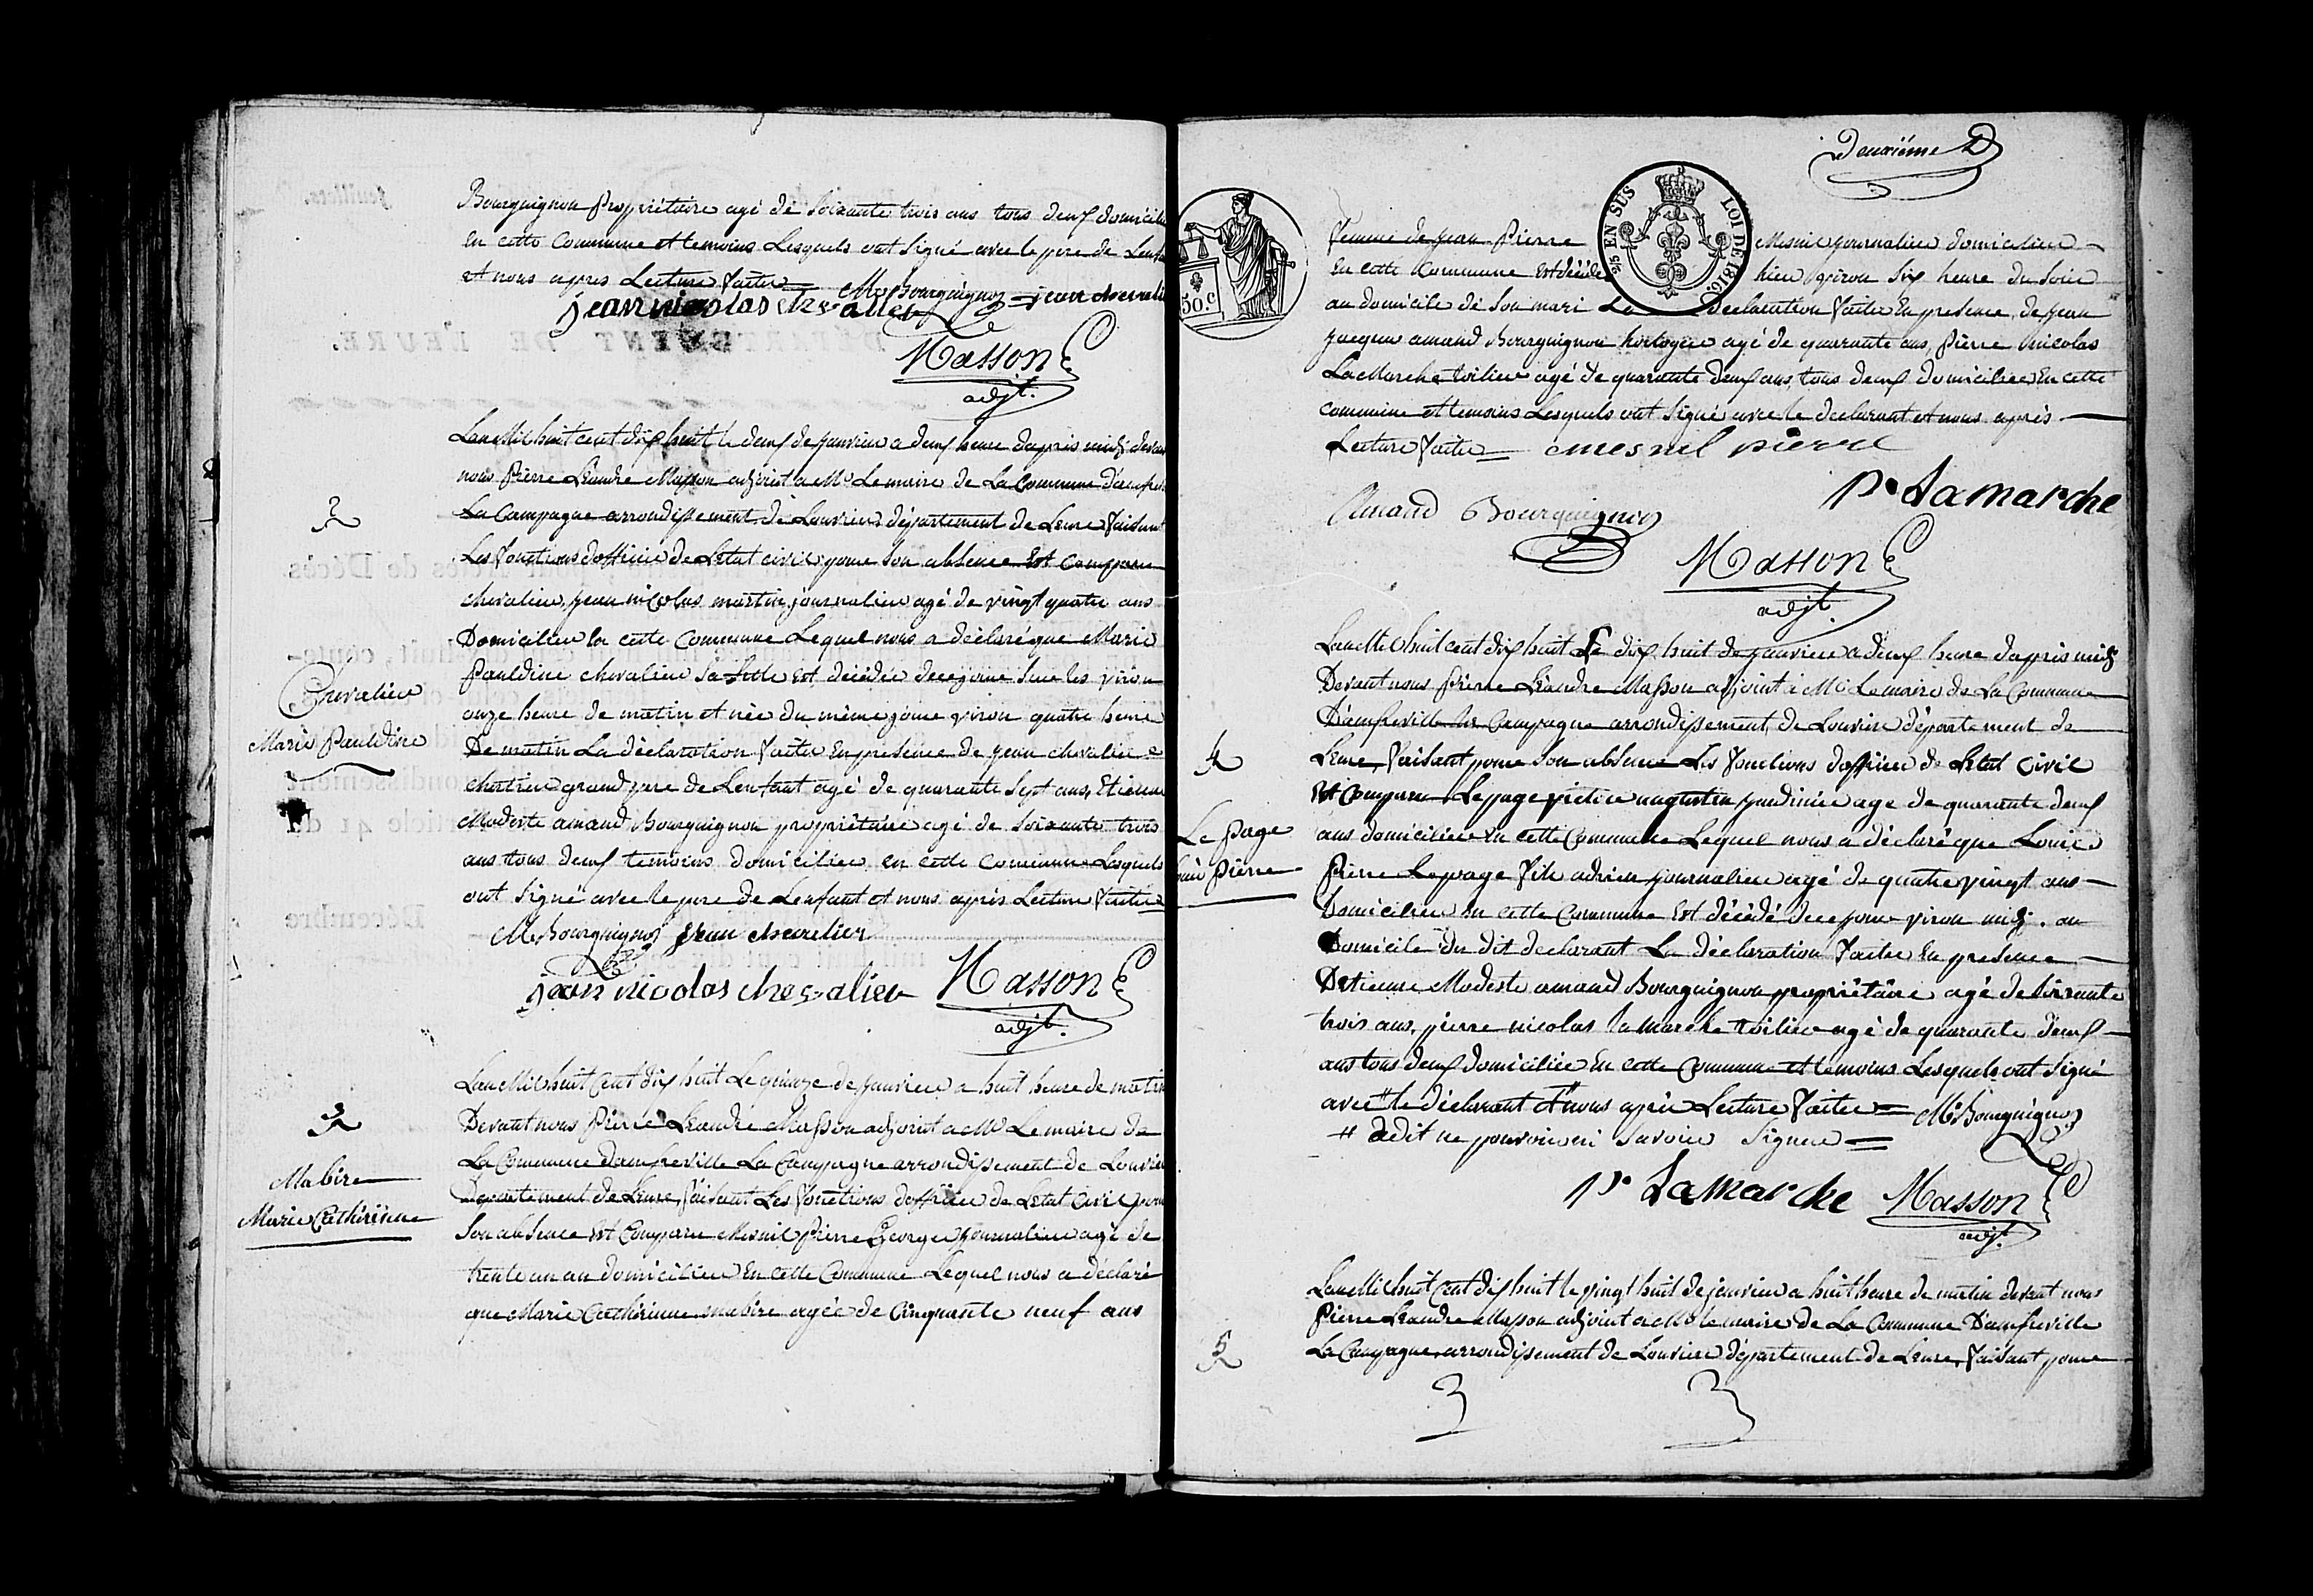 Bourguignon propriétaire agé de soixante trois ans tous deux domicilié
en cette commune et temoins lesquels ont signé avec le pere de Lenfan
et nous apres Lecture faitte
M. Bourguignon jean chevalie
jean nicolas chevalier
Masson
adjt.
2
Chevalier
Marie Pauldine
Lan Mil huit cent dix huit le deux de janvier a deux heure dapris midi devan
nous Pierre Léandre Masson adjoint a Mr Le maire de La Commune damfre
La Campagne arrondissement de Louvier département de Leure faisant
Les fonctions dofficier de Létat civil pour son absence Est Comparu
chevalier jean nicolas martin journalier agé de vingt quatre ans
Domicilier en cette Commune Lequel nous a déclaré que Marie
Pauldine chevalier sa fille Est décédée ce jour sur les viron
onze heure de matin et née du même jour viron quatre heure
De matin La déclaration faitte en presence de jean chevalier
grand pere de Lenfant agé de quarante Sept ans, Etienne
Modeste amand Bourguignon propriétaire agé de soixante trois
ans tous deux temoins domicilier en cette commune Lesquels
ont signé avec le pere de Lenfant et nous apris Lecture faitte
M. Bourguignon jean chevalier
jean nicolas chevalier Masson
adjt.
3
Mabire
Marie Catherinne
Lan Mil huit Cent dix huit Le quinze de janvier a huit heure de matin
Devant nous Pierre Léandre Masson adjoint a Mr Le maire de
La Commune damfreville La Campagne arrondissement de Louvier
Département de Leure, faisant Les fonctions dofficier de Letat Civil pour
Son absence Est Comparu Mesnil Pierre George journalier agé de
trente un an domicilier En cette Commune Lequel nous a déclaré
que Marie Catherinne mabire agée de Cinquante neuf ans
Deuxième
50.c
2/5 EN SUS
LOI DE 1816.
femme de jean Pierre Mesnil journalier domicilier
En cette Commune Est décédé hier viron six heure du soir
au domicile de Son mari La Declaration faitte En presence de jean
jacque amand Bourguignon horloger agé de quarante ans, Pierre Nicolas
La Marche toilier agé de quarante deux ans, tous deux domicilier En cette
commune et temoins Lesquels ont signé avec le declarant et nous après
Lecture faitte mesnil pierre
P. Lamarche
Amand Bourguignon
Masson
adjt.
4
Le page
Pierre
Lan Mil huit cent dix huit Le dix huit de janvier a deux heure dapris midi
Devant nous Pierre Léandre Masson adjoint à Mr Le maire de La Commune
Damfreville La Campagne arrondissement de Louvier département de
Leure, faisant pour Son absence Les fonctions dofficier de Létat Civil
Est Comparu Lepage victor augustin jardinier age de quarante deux
ans domicilier en cette Commune Lequel nous a déclaré que Louis
Pierre Lepage journalier agé de quatre vingt ans
Domicilier en cette Commune Est décédé ce jour viron midi au
Domicile du dit declarant La déclaration faitte en presence
Detienne Modeste amand Bourguignon propriétaire agé de soixante
trois ans, pierre nicolas la marche toilier agé de quarante deux
ans tous deux domicilier en cette Commune et temoins Lesquels ont signé
avec # le déclarant et nous apris Lecture faitte M. Bourguignon
# a dit ne pouvoir ni savoir signer
P. Lamarche Masson
adjt.
5
Lan Mil huit Cent dix huit le vingt huit de janvier a huit heure de matin devant nous
Pierre Léandre Masson adjoint a Mr le maire de La Commune Damfreville
La Campagne, arrondissement de Louvier département de Leure, faisant pour